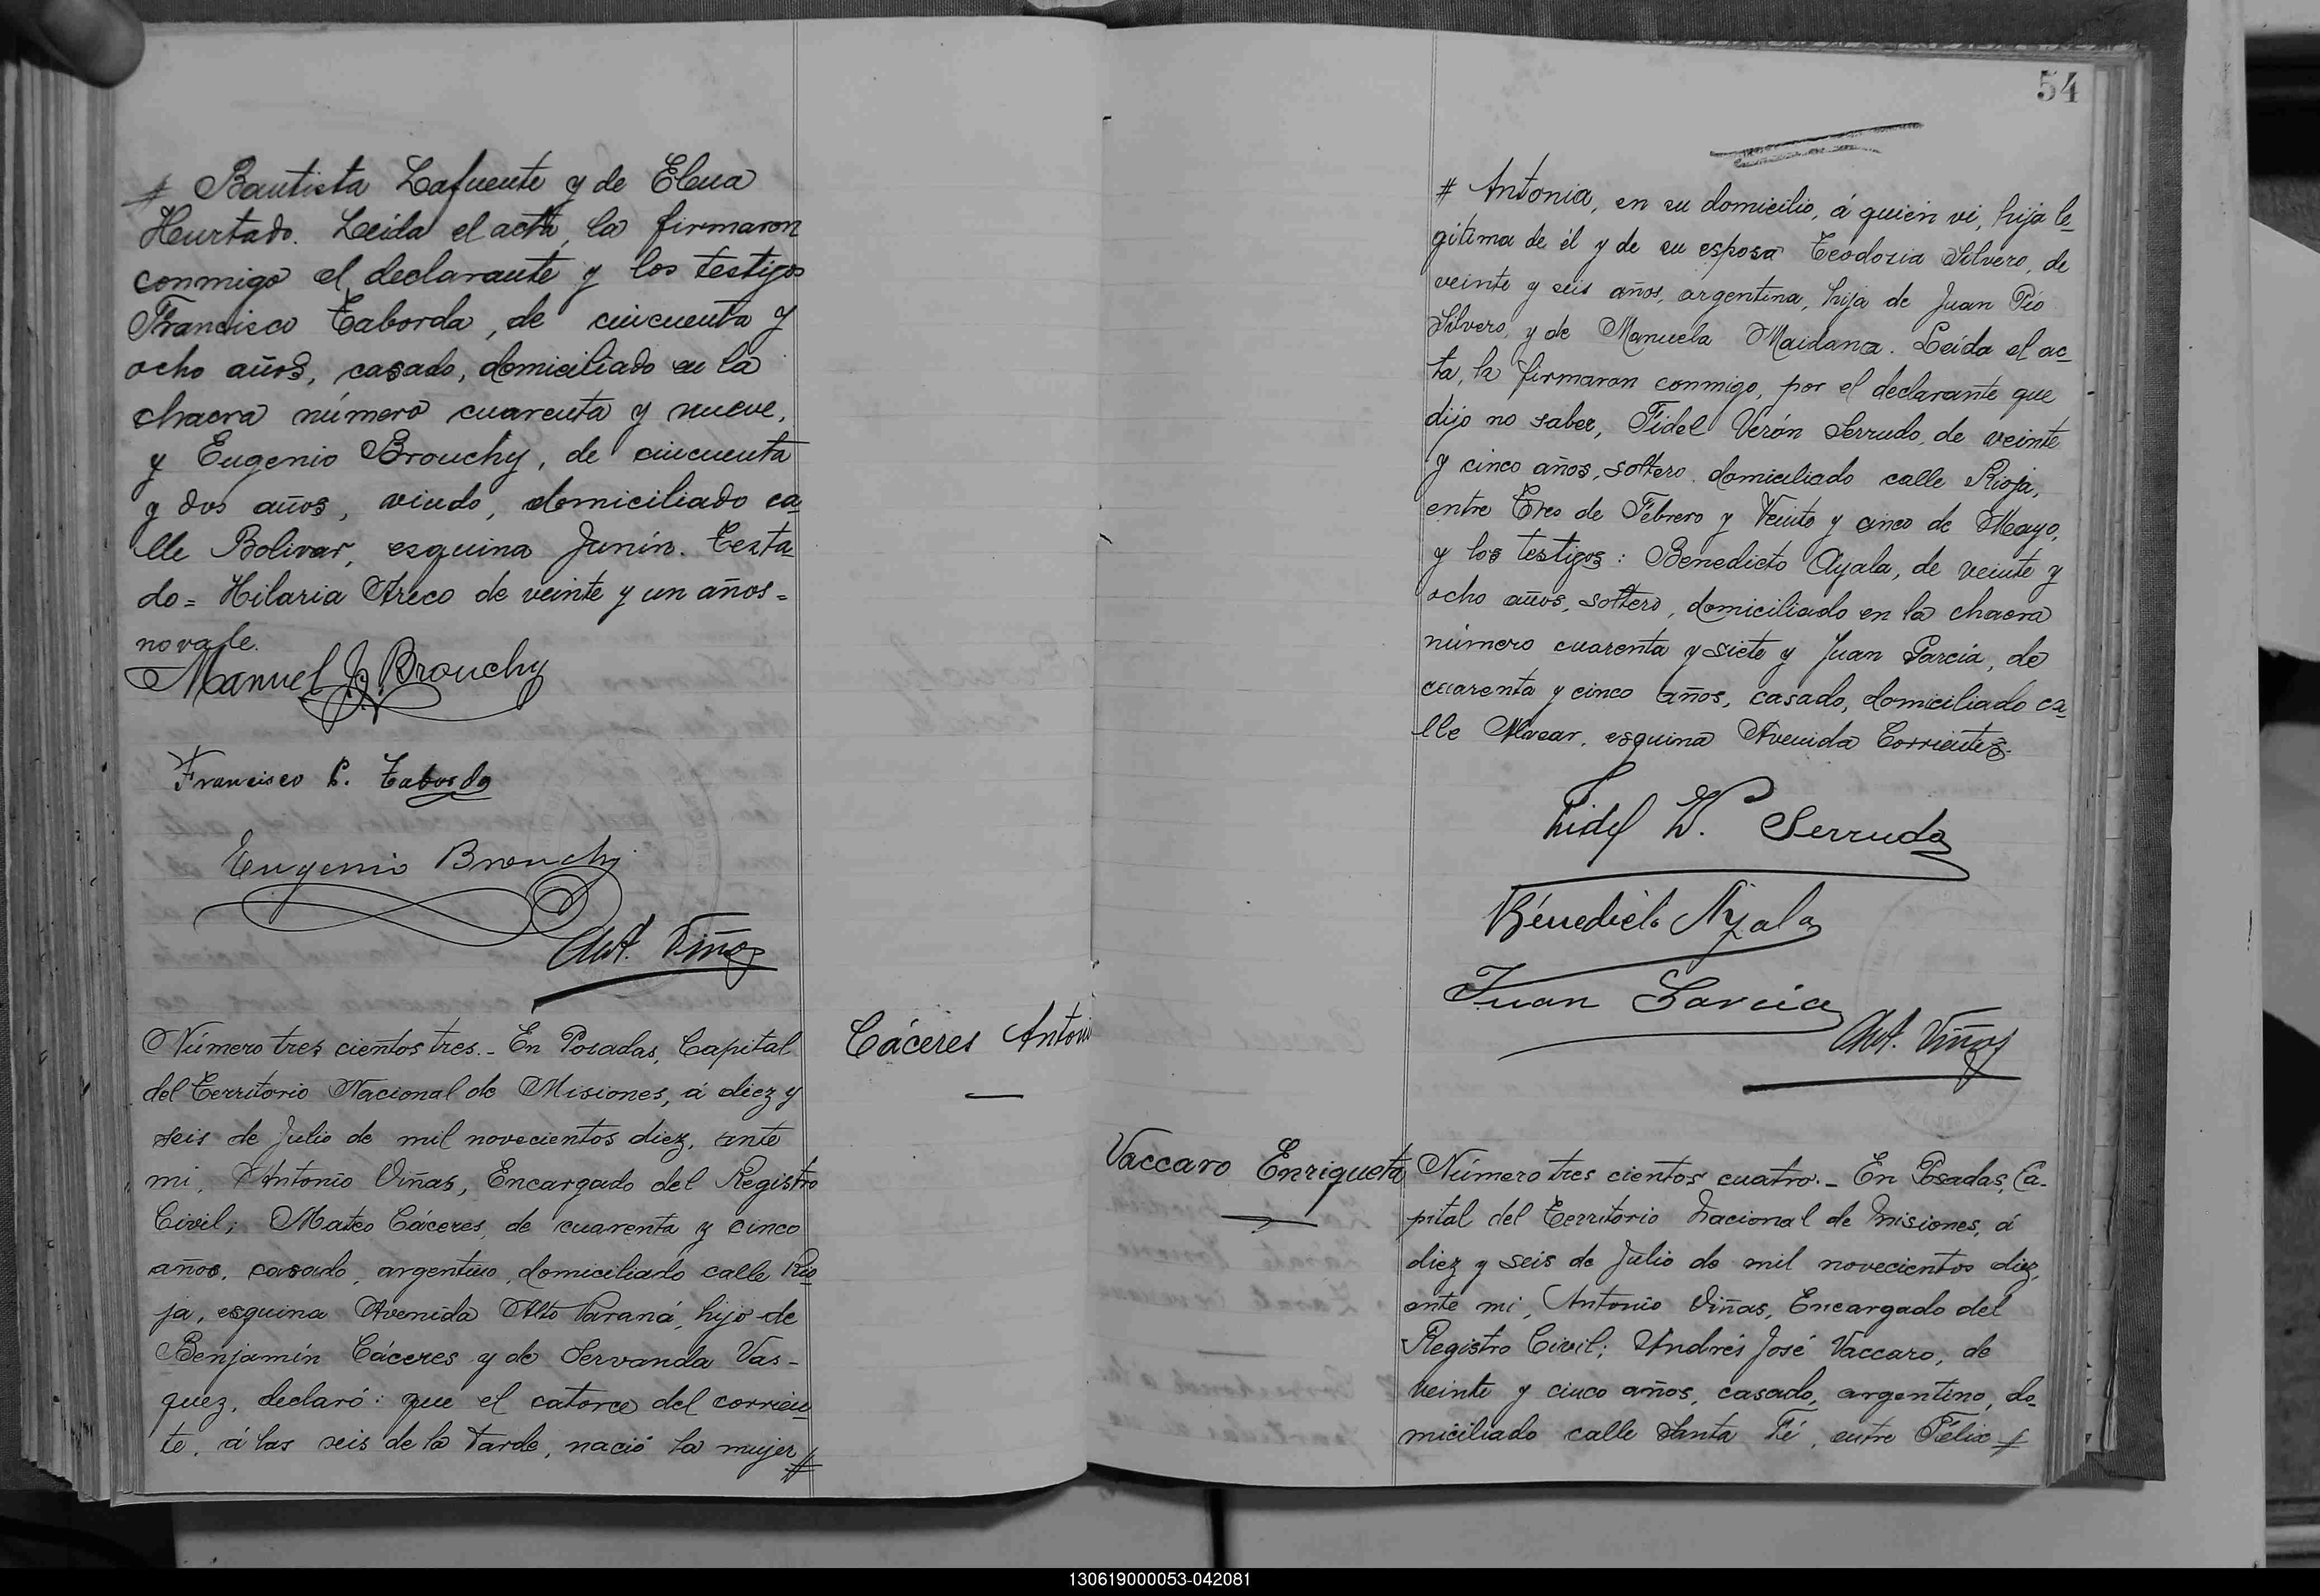 # Bautista Lafuente y de Elena
Hurtado. Leída el acta, la firmaron
conmigo el declarante y los testigos
Francisco Taborda, de cincuenta y
ocho años, casado, domiciliado en la
chacra número cuarenta y nueve,
y Eugenio Brouchy, de cincuenta
y dos años, viudo, domiciliado ca-
lle Bolivar, esquina Junín. Testa
do = Hilaria Areco de veinte y un años =
no vale.
Manuel J. Brouchy
Francisco P. Taborda
Eugenio Brouchy
Ant. Viñas
Número tres cientos tres._ En Posadas, Capital
del Territorio Nacional de Misiones, á diez y
seis de Julio de mil novecientos diez, ante
mi, Antonio Viñas, Encargado del Registro
Civil; Mateo Cáceres, de cuarenta y cinco
años, casado, argentino, domiciliado calle Rio
ja, esquina Avenida Alto Paraná, hijo de
Benjamín Cáceres y de Servanda Vas-
quez, declaró: que el catorce del corrien-
te, á las seis de la tarde, nació la mujer #
Cáceres Antoni
54
# Antonia, en su domicilio, á quien vi, hija le-
gítima de él y de su esposa Teodosia Silvero, de
veinte y seis años, argentina, hija de Juan Pío
Silvero, y de Manuela Maidana. Leída el ac-
ta, la firmaron conmigo, por el declarante que
dijo no saber, Fidel Verón Serrudo, de veinte
y cinco años, soltero, domiciliado calle Rioja,
entre Tres de Febrero y Veinte y cinco de Mayo,
y los testigos: Benedicto Ayala, de veinte y
ocho años, soltero, domiciliado en la chacra
número cuarenta y siete y Juan García, de
cuarenta y cinco años, casado, domiciliado ca-
lle Alvear, esquina Avenida Corrientes.
Fidel V. Serrudo
Benedicto Ayala
Juan Garcia
Ant. Viñas
Vaccaro Enriqueta
Número tres cientos cuatro._ En Posadas, Ca-
pital del Territorio Nacional de Misiones, á
diez y seis de Julio de mil novecientos diez,
ante mi, Antonio Viñas, Encargado del
Registro Civil; Andrés José Vaccaro, de
veinte y cinco años, casado, argentino, do-
miciliado calle Santa Fé, entre Félix #
130619000053-042081